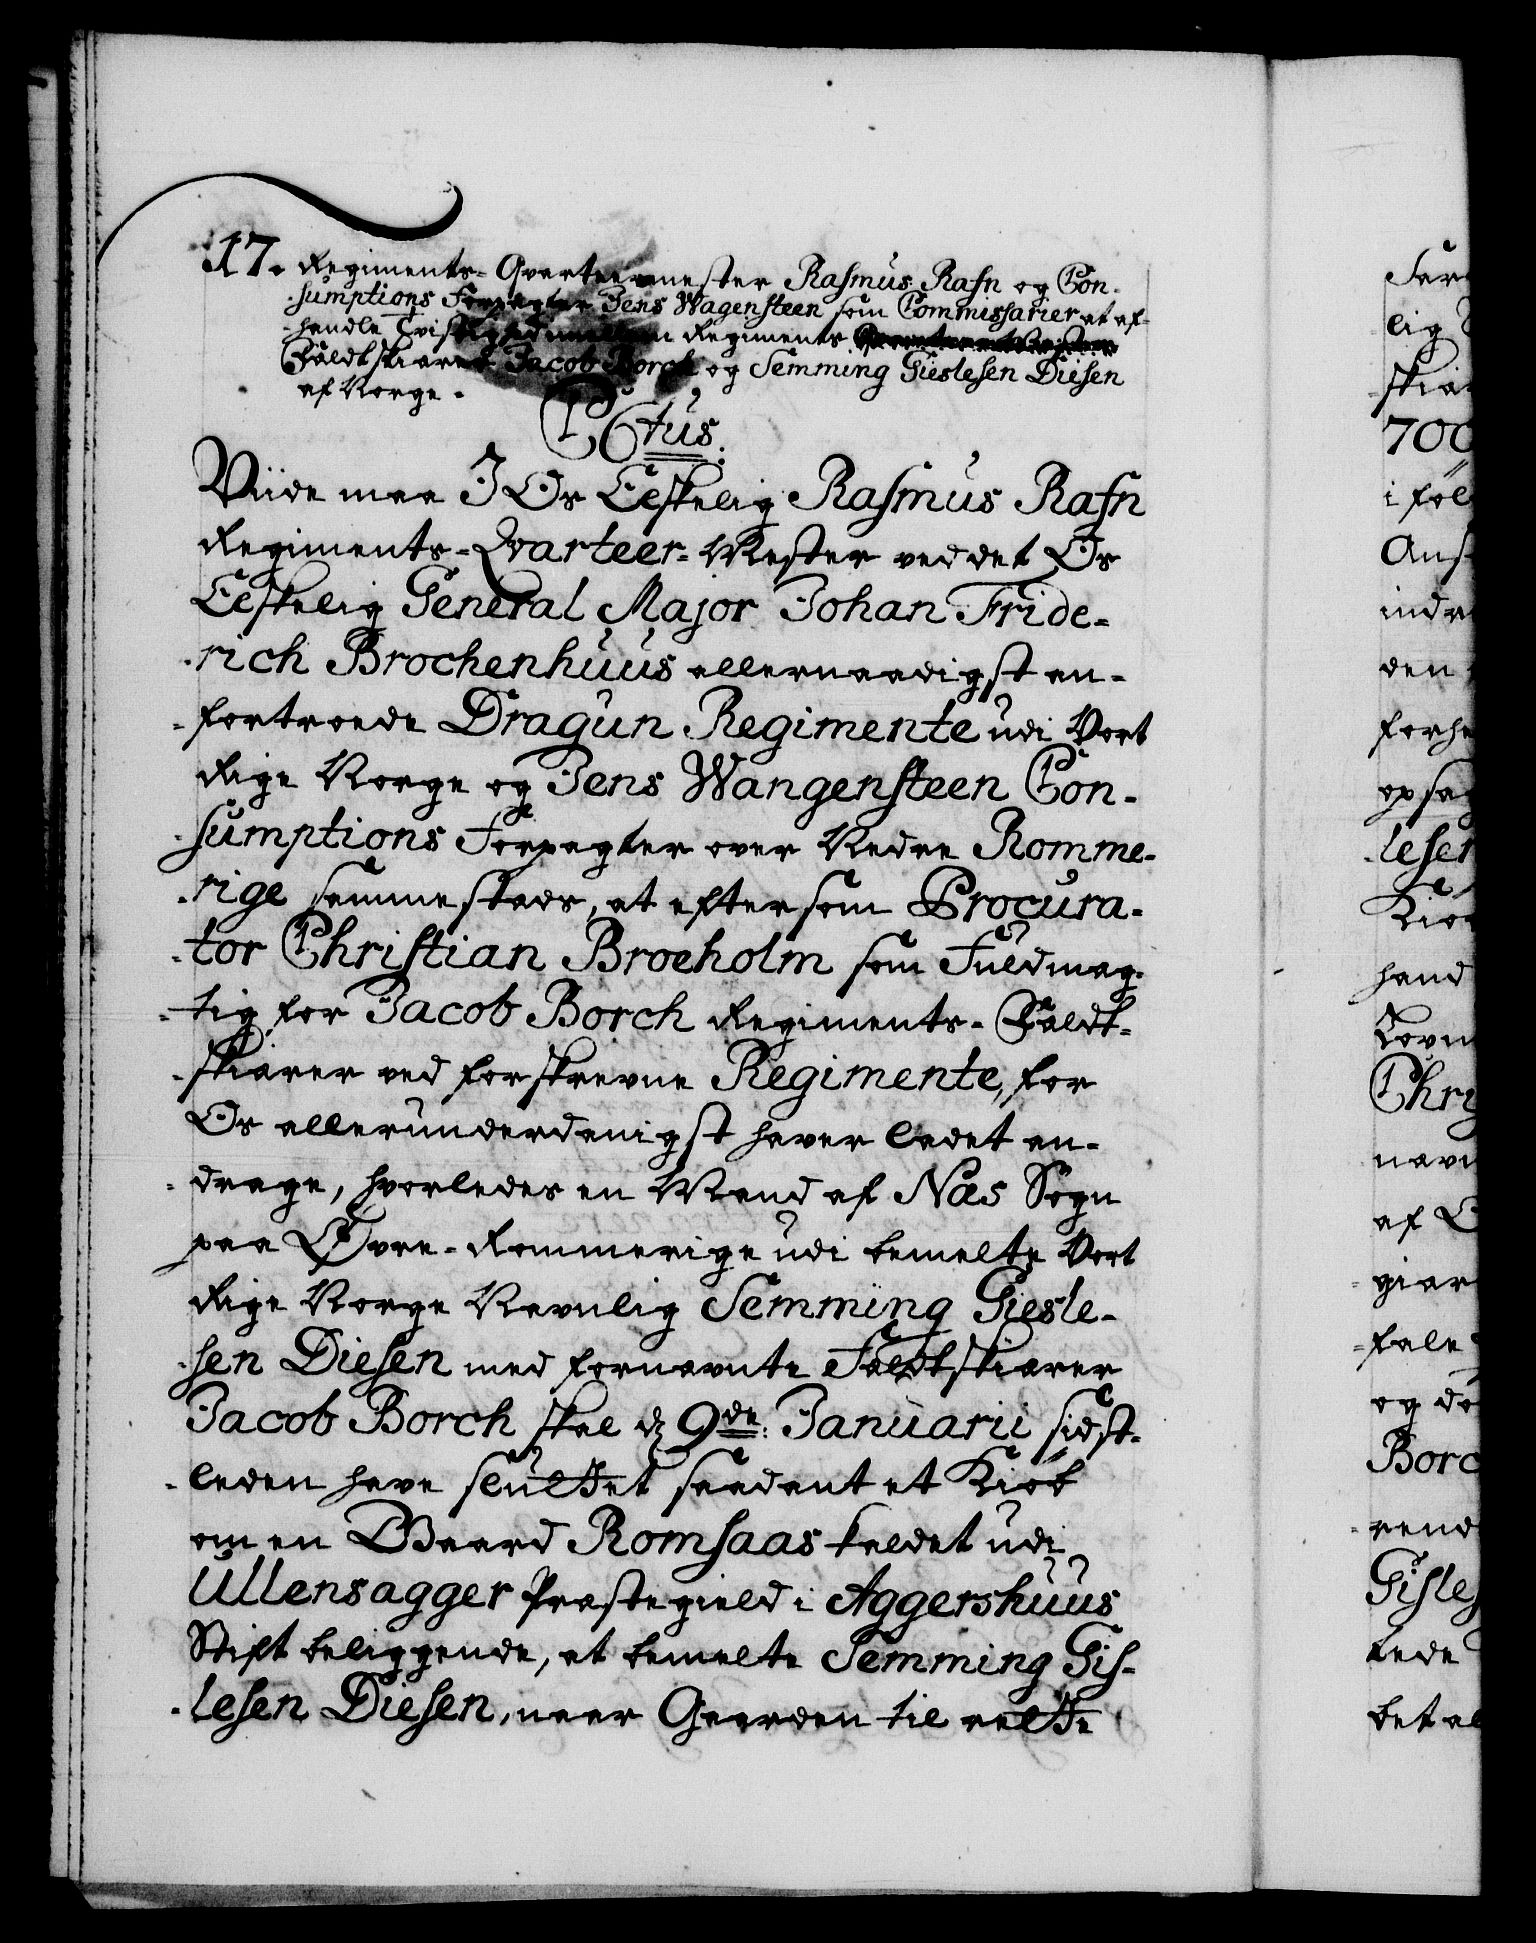 17. Regiments-Qvarteermester Rasmus Rafn og Con-
-sumptions Forpagter Jens Wagensteen som Commissarier at af-
-handle Tvistighed imellem Regiments
Fældtskiærer Jacob Borch og Semming Gieslesen Diesen
af Norge.
C6tus.
Viide maa I Os Elskelig Rasmus Rafn
Regiments-Qvarteer-Mester ved det Os
Elskelig General Major Johan Fride-
-rich Brochenhuus allernaadigst an-
-fortroede Dragun Regimente udi Vort
Rige Norge og Jens Wangensteen Con-
-sumptions Forpagter over Nedre Romme-
-rige sammestæds, at eftersom Procura-
-tor Christian Broeholm som Fuldmæg-
-tig for Jacob Borch Regiments-Fældt-
-skiærer ved forskrevne Regimente, for
Os allerunderdanigst haver ladet an-
-drage, hvorledes en Mand af Næs Sogn
paa Øvre-Rommerige udi bemelte Vort
Rige Norge Navnlig Semming Giesle-
-sen Diesen med fornævnte Fældtskiærer
Jacob Borch skal d 9de: Januarii sidst-
-leden have sluttet saadant et Kiøb
om en Gaard Romsaas kaldet udi
Ullensagger Præstegield i Aggershuus
Stift beliggende, at bemelte Semming Gis-
-lesen Diesen, naar Gaarden til rette
lig
700
i føl
den
og
Borc
Gisles